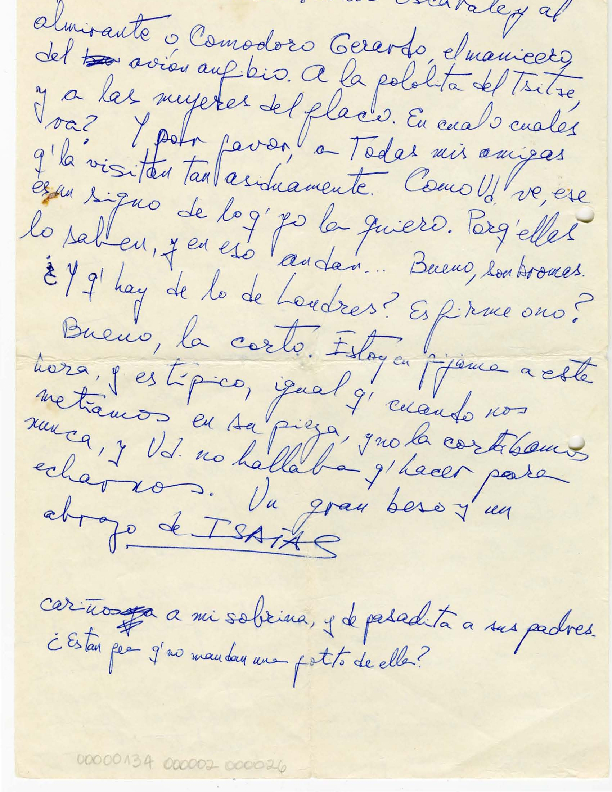 al
almirante o Comodoro Gerardo, el manicero
del avión anfibio. A la pololita del Tsitse,
y a las mujeres del flaco. En cual o cuales
va? Y por favor, a Todas mis amigas
q' la visitan tan asiduamente. Como Vd. ve, ese
es un signo de lo q' yo la quiero. Porq' ellas
lo saben, y en eso andan... Bueno, son bromas.
¿Y q' hay de lo de Londres? Es firme o no?
Bueno, la corto. Estoy en pijama a esta
hora, y es típico, igual q' cuando nos
metíamos en su pieza, y no la cortábamos
nunca, y Vd. no hallaba q' hacer para
echarnos. Un gran beso y un
abrazo de ISAIAS
cariños a mi sobrina, y de pasadita a sus padres.
¿Están q' no mandan una fotito de ella?
0000013A 000002 000026